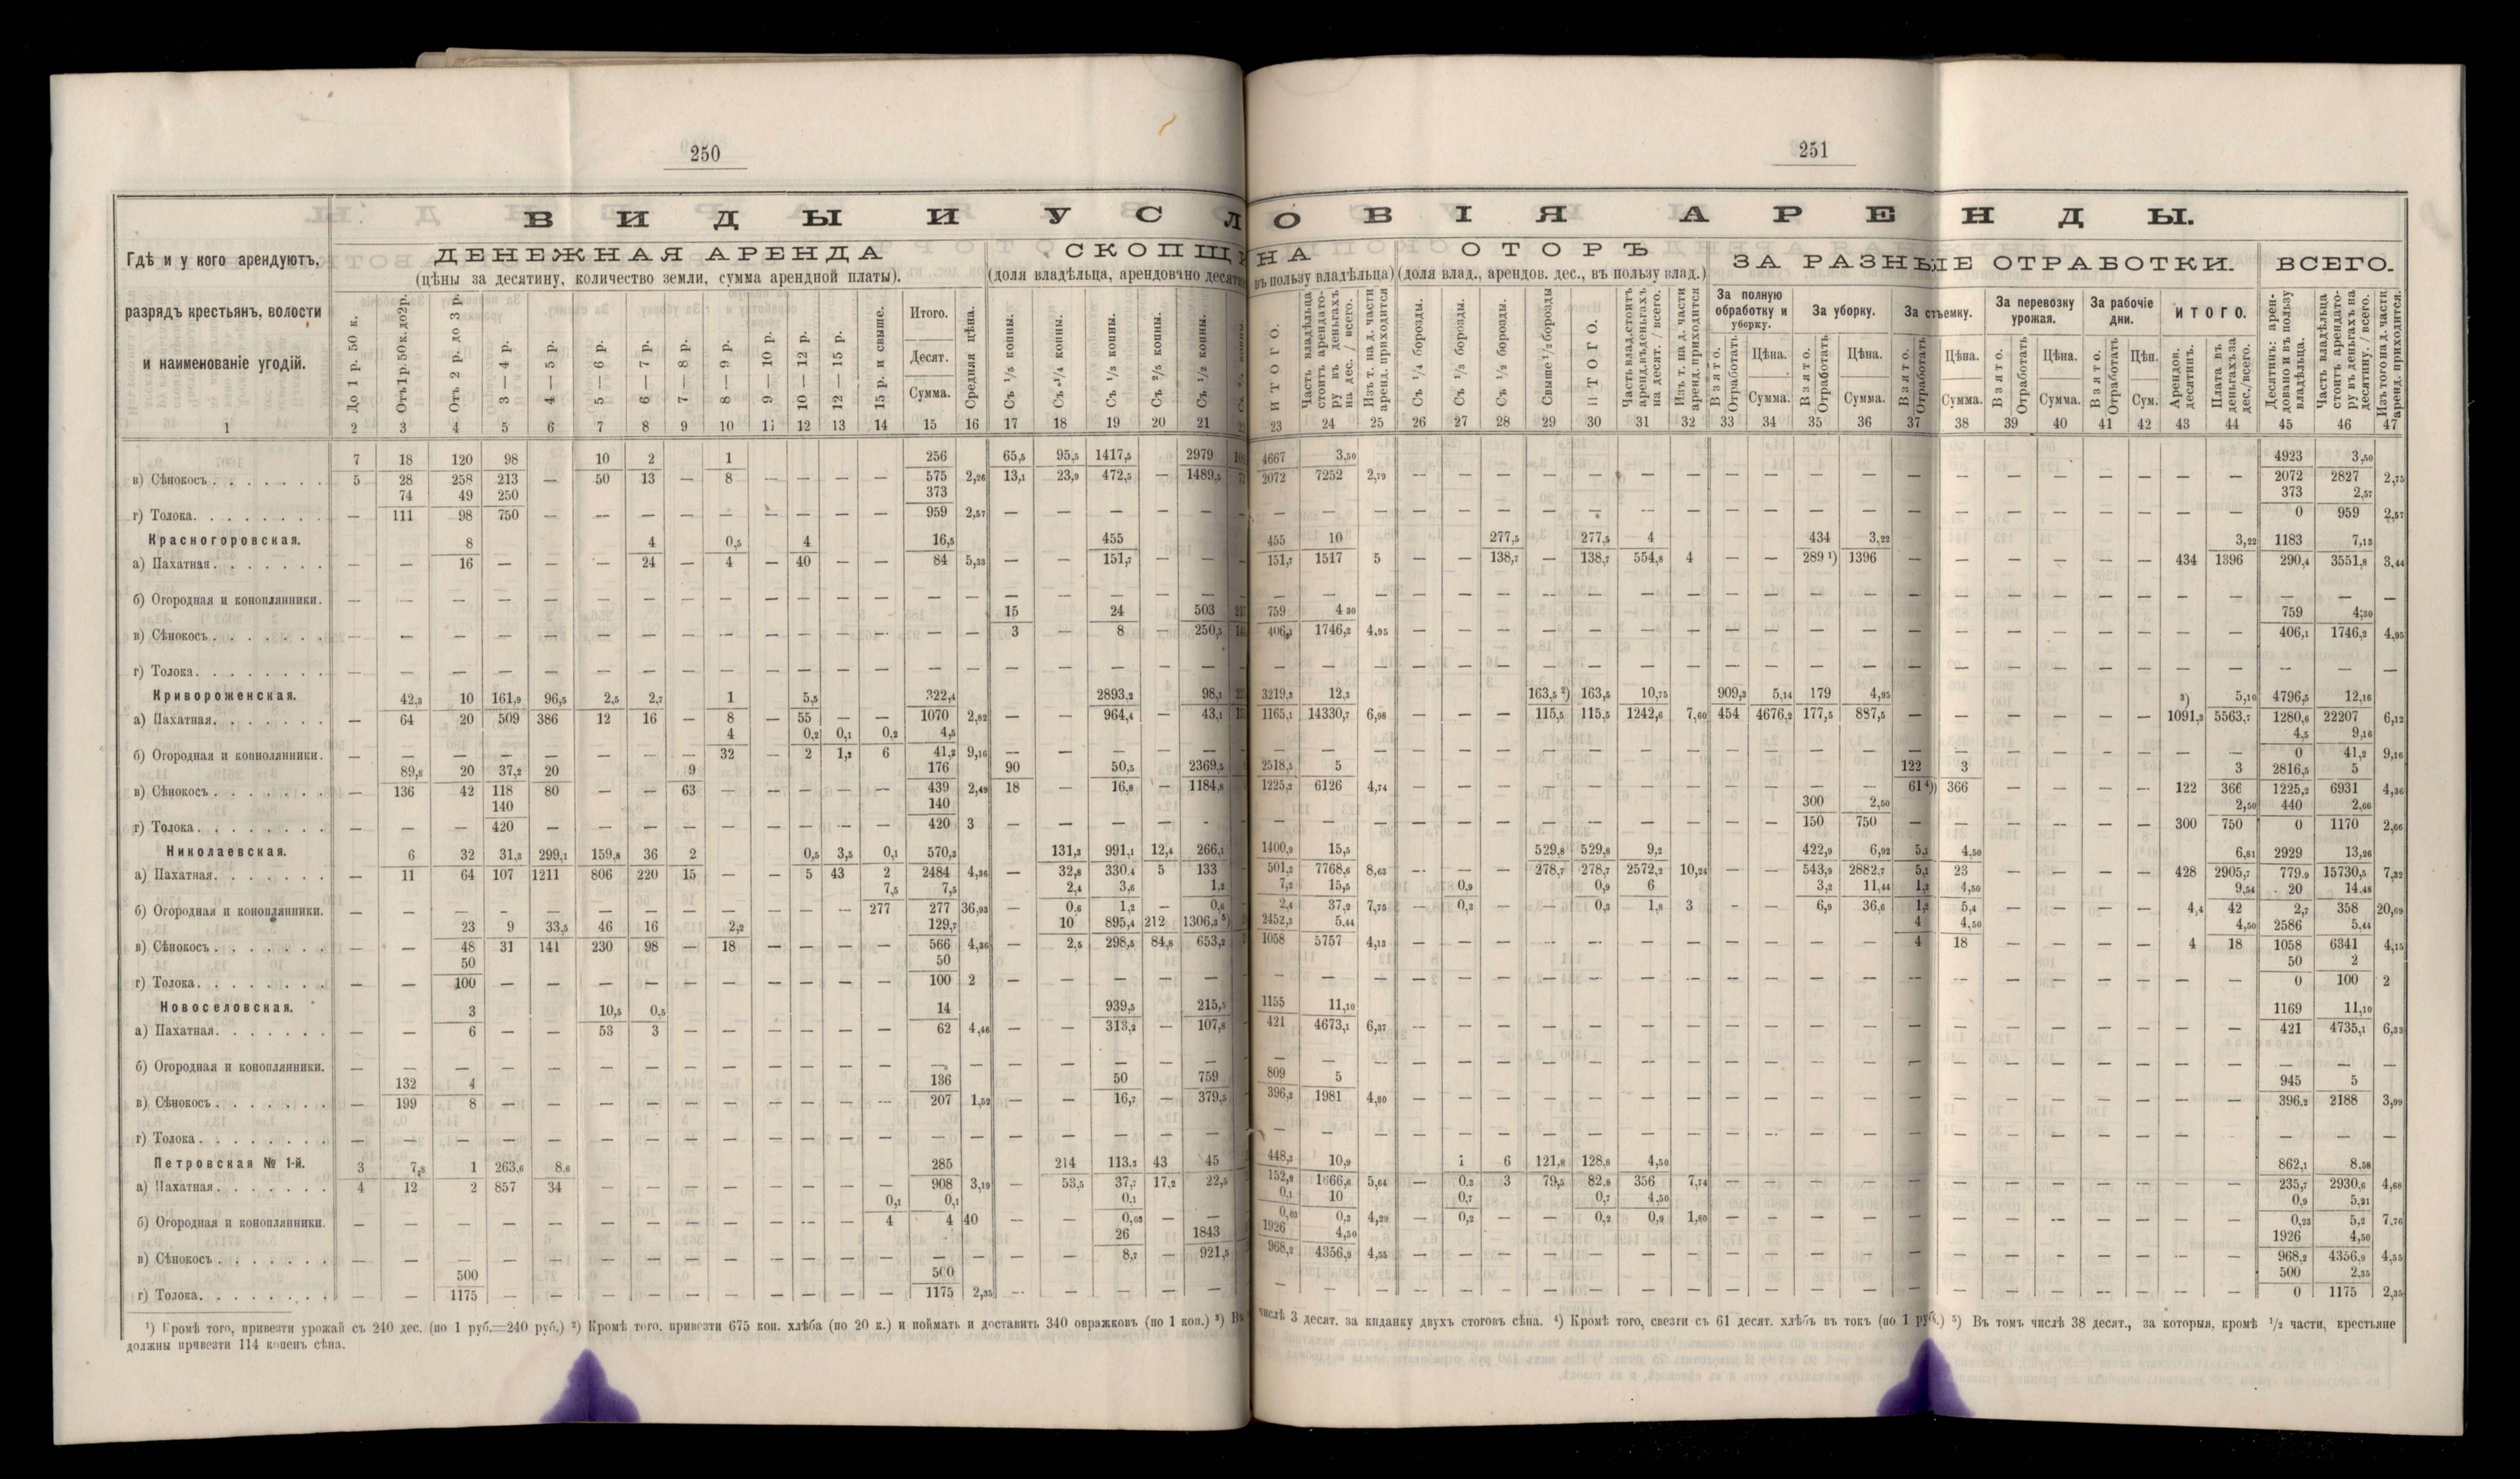 250
251
ВИДЫ И УСЛОВІЯ АРЕНДЫ.
Гдѣ и у кого арендуютъ, разрядъ крестьянъ, волости и наименованіе угодій.
ДЕНЕЖНАЯ АРЕНДА
(цѣны за десятину, количество земли, сумма арендной платы).
До 1 р. 50 к.
Отъ 1 р. 50 к. до 2 р.
Отъ 2 р. до 3 р.
3 — 4 р.
4 — 5 р.
5 — 6 р.
6 — 7 р.
7 — 8 р.
8 — 9 р.
9 — 10 р.
10 — 12 р.
12 — 15 р.
15 р. и свыше.
Итого.
Десят.
Сумма.
Средняя цѣна.
Съ 1/5 копны.
Съ 1/4 копны.
Съ 1/3 копны.
Съ 2/5 копны.
Съ 1/2 копны.
ИТОГО.
Часть владѣльца стоитъ арендатору въ деньгахъ на дес. / всего.
Изъ т. на д. части аренд. приходится
ОТОРЪ
(доля влад., арендов. дес., въ пользу влад.)
Съ 1/4 борозды.
Съ 1/3 борозды.
Съ 1/2 борозды.
Свыше 1/2 борозды
ИТОГО.
Часть влад. стоитъ аренд. въ деньгахъ на десят. / всего.
Изъ т. на д. части аренд. приходится
ЗА РАЗНЫЕ ОТРАБОТКИ.
За полную обработку и уборку.
За уборку.
За съемку.
За перевозку урожая.
За рабочіе дни.
ИТОГО.
Взято. Отработать
Цѣна. Сумма.
Взято. Отработать
Цѣна. Сумма.
Взято. Отработать
Цѣна. Сумма.
Взято. Отработать
Цѣна. Сумма.
Взято. Отработать
Цѣн. Сум.
Арендов. десятинъ.
Плата въ деньгахъ за дес./всего.
ВСЕГО.
Десятинъ: арендовано и въ пользу владѣльца.
Часть владѣльца стоитъ арендатору въ деньгахъ на десятину. / всего.
Изъ того на д. части аренд. приходится.
1 2 3 4 5 6 7 8 9 10 11 12 13 14 15 16 17 18 19 20 21 23 24 25 26 27 28 29 30 31 32 33 34 35 36 37 38 39 40 41 42 43 44 45 46 47
7 18 120 98 10 2 1 256 65,5 95,5 1417,5 2979 4667 3,50 4923 3,50
в) Сѣнокосъ 5 28 258 213 — 50 13 — 8 — — — — 575 2,26 13,1 23,9 472,5 — 1489,5 2072 7252 2,79 — — — — — — — — — — — — — — — — — — — 2072 2827 2,75
74 49 250 373 373 2,57
г) Толока — 111 98 750 — — — — — — — — — 959 2,57 — — — — — — — — — — — — — — — — — — — — — — — — — — — 0 959 2,57
Красногоровская. 8 4 0,5 4 16,5 455 455 10 277,5 277,5 4 434 3,22 3,22 1183 7,13
а) Пахатная — — 16 — — — 24 — 4 — 40 — — 84 5,33 — — 151,7 — — 151,7 1517 5 — — 138,7 — 138,7 554,8 4 — — 289 1) 1396 — — — — — — 434 1396 290,4 3551,8 3,44
б) Огородная и коноплянники. — — — — — — — — — — — — — — — — — — — — — — — — — — — — — — — — — — — — — — — — — — — — —
15 24 503 759 4 30 759 4,30
в) Сѣнокосъ — — — — — — — — — — — — — — — 3 — 8 — 250,5 406,1 1746,2 4,95 — — — — — — — — — — — — — — — — — — — 406,1 1746,2 4,95
г) Толока — — — — — — — — — — — — — — — — — — — — — — — — — — — — — — — — — — — — — — — — — — — — —
Кривороженская. 42,3 10 161,9 96,5 2,5 2,7 1 5,5 322,4 2893,2 98,1 3219,3 12,3 163,5 2) 163,5 10,75 909,3 5,14 179 4,95 3) 5,10 4796,5 12,16
а) Пахатная — 64 20 509 386 12 16 — 8 — 55 — — 1070 2,82 — — 964,4 — 43,1 1165,1 14330,7 6,98 — — — 115,5 115,5 1242,6 7,60 454 4676,2 177,5 887,5 — — — — — — 1091,3 5563,7 1280,6 22207 6,12
4 0,2 0,1 0,2 4,5 4,5 9,16
б) Огородная и копнолянники. — — — — — — — — 32 — 2 1,2 6 41,2 9,16 — — — — — — — — — — — — — — — — — — — — — — — — — — — 0 41,2 9,16
89,8 20 37,2 20 9 176 90 50,5 2369,5 2518,5 5 122 3 3 2816,5 5
в) Сѣнокосъ — 136 42 118 80 — — 63 — — — — — 439 2,49 18 — 16,8 — 1184,8 1225,2 6126 4,74 — — — — — — — — — — — 61 4) 366 — — — — 122 366 1225,2 6931 4,36
140 140 300 2,50 2,50 440 2,66
г) Толока — — — 420 — — — — — — — — — 420 3 — — — — — — — — — — — — — — — — — 150 750 — — — — — — 300 750 0 1170 2,66
Николаевская. 6 32 31,3 299,1 159,8 36 2 0,5 3,5 0,1 570,3 131,3 991,1 12,4 266,1 1400,9 15,5 529,8 529,8 9,2 422,9 6,92 5,1 4,50 6,81 2929 13,26
а) Пахатная — 11 64 107 1211 806 220 15 — — 5 43 2 2484 4,36 — 32,8 330,4 5 133 501,2 7768,6 8,63 — — — 278,7 278,7 2572,2 10,24 — — 543,9 2882,7 5,1 23 — — — — 428 2905,7 779,9 15730,5 7,32
7,5 7,5 2,4 3,6 1,2 7,2 15,5 0,9 0,9 6 3,2 11,44 1,2 4,50 9,54 20 14,48
б) Огородная и коноплянники. — — — — — — — — — — — — 277 277 36,93 — 0,6 1,2 — 0,6 2,4 37,2 7,75 — 0,3 — — 0,3 1,8 3 — — 6,9 36,6 1,2 5,4 — — — — 4,4 42 2,7 358 20,69
23 9 33,5 46 16 2,2 129,7 10 895,4 212 1306,3 5) 2452,3 5,44 4 4,50 4,50 2586 5,44
в) Сѣнокосъ — — 48 31 141 230 98 — 18 — — — — 566 4,36 — 2,5 298,5 84,8 653,2 1058 5757 4,13 — — — — — — — — — — — 4 18 — — — — 4 18 1058 6341 4,15
50 50 50 2
г) Толока — — 100 — — — — — — — — — — 100 2 — — — — — — — — — — — — — — — — — — — — — — — — — — — 0 100 2
Новоселовская. 3 10,5 0,5 14 939,5 215,5 1155 11,10 1169 11,10
а) Пахатная — — 6 — — 53 3 — — — — — — 62 4,46 — — 313,2 — 107,8 421 4673,1 6,37 — — — — — — — — — — — — — — — — — — — 421 4735,1 6,33
б) Огородная и коноплянники. — — — — — — — — — — — — — — — — — — — — — — — — — — — — — — — — — — — — — — — — — — — — —
132 4 136 50 759 809 5 945 5
в) Сѣнокосъ — 199 8 — — — — — — — — — — 207 1,52 — — 16,7 — 379,5 396,2 1981 4,80 — — — — — — — — — — — — — — — — — — — 396,2 2188 3,99
г) Толока — — — — — — — — — — — — — — — — — — — — — — — — — — — — — — — — — — — — — — — — — — — — —
Петровская № 1-й. 3 7,8 1 263,6 8,6 285 214 113,3 43 45 448,3 10,9 1 6 121,8 128,8 4,50 862,1 8,58
а) Пахатная 4 12 2 857 34 — — — — — — — — 908 3,19 — 53,5 37,7 17,2 22,5 152,9 1666,6 5,64 — 0,3 3 79,5 82,8 356 7,74 — — — — — — — — — — — — 235,7 2930,6 4,68
0,1 0,1 0,1 0,1 10 0,7 0,7 4,50 0,9 5,21
б) Огородная и коноплянники. — — — — — — — — — — — — 4 4 40 — — 0,03 — — 0,03 0,3 4,29 — 0,2 — — 0,2 0,9 1,80 — — — — — — — — — — — — 0,23 5,2 7,76
26 1843 1926 4,50 1926 4,50
в) Сѣнокосъ — — — — — — — — — — — — — — — — — 8,7 — 921,5 968,2 4356,9 4,55 — — — — — — — — — — — — — — — — — — — 968,2 4356,9 4,55
500 500 500 2,35
г) Толока — — 1175 — — — — — — — — — — 1175 2,35 — — — — — — — — — — — — — — — — — — — — — — — — — — — 0 1175 2,35
1) Кромѣ того, привезти урожай съ 240 дес. (по 1 руб.=240 руб.) 2) Кромѣ того, привезти 675 коп. хлѣба (по 20 к.) и поймать и доставить 340 овражковъ (по 1 коп.) 3) Въ числѣ 3 десят. за киданку двухъ стоговъ сѣна. 4) Кромѣ того, свезти съ 61 десят. хлѣбъ въ токъ (по 1 руб.) 5) Въ томъ числѣ 38 десят., за которыя, кромѣ 1/2 части, крестьяне
должны привезти 114 копенъ сѣна.